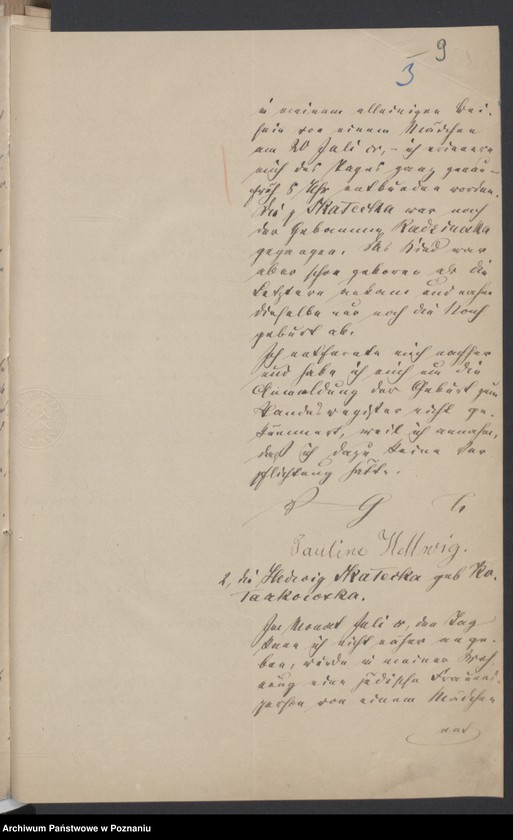 9
3
in meinem alleinigen Bei-
sein von einem Mädchen
am 20 Juli cr, – ich erinnere
mich des Tages ganz genau –
früh 8 Uhr entbunden worden.
Die p Skatecka war nach
der Hebamme Radzinska
gegangen. Das Kind war
aber schon geboren als die
Letztere ankam und nahm
dieselbe nur noch die Nach
geburt ab.
Ich entfernte mich nachher
und habe ich mich um die
Anmeldung der Geburt zum
Standesregister nicht ge-
kümmert, weil ich annahm,
daß ich dazu keine Ver
pflichtung hatte.
Pauline Hellwig.
2, die Hedwig Skatecka geb
Im Monat Juli cr, den Tag
kann ich nicht näher ange-
ben, wurde in meiner Woh
nung eine jüdische Frauens-
person von einem Mädchen
ent
Archiwum Państwowe w Poznaniu